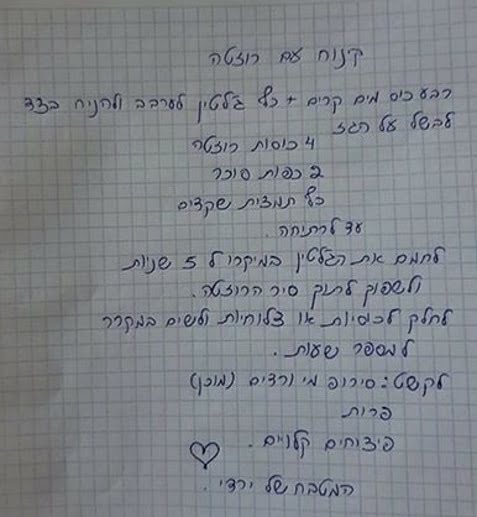 קינוח עם רוזטה
רבע כוס מים קרים + כף ג'לטין לערבב ולהניח בצד
לבשל על הגז
4 כוסות רוזטה
2 כפות סוכר
כף תמצית שקדים
עד לרתיחה.
לחמם את הג'לטין במיקרו ל 5 שניות
ולשפוך לתוך סיר הרוזטה.
לחלק לכוסיות או צלוחיות ולשים במקרר
למספר שעות.
לקשט: סירופ מי ורדים (מוכן)
פרות
פיצוחים קלויים.
המטבח של ירדי.